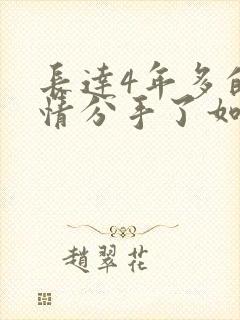 長達4年多的
情分手了如
趙翠花